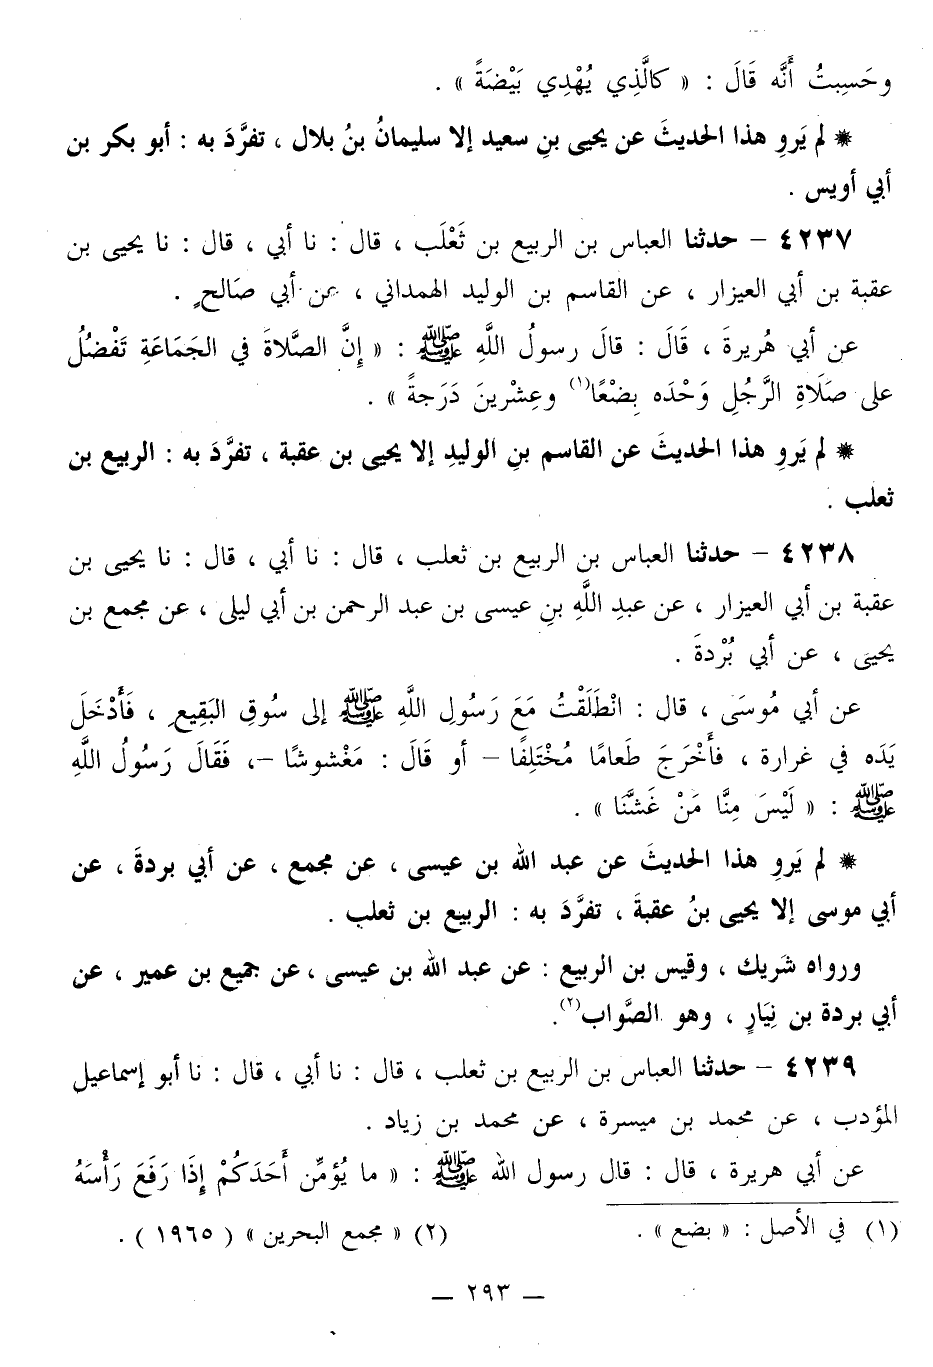 وحَسِبتُ أَنَّه قَالَ : « كالَّذِي يُهْدِي بَيْضَةً » .
* لم يَروِ هذا الحديثَ عن يحيى بنِ سعيد إلا سليمانُ بنُ بلال ، تفرَّدَ به : أبو بكر بن
أبي أويس .
٤٢٣٧ – حدثنا العباس بن الربيع بن ثَعْلَب ، قال : نا أبي ، قال : نا يحيى بن
عقبة بن أبي العيزار ، عن القاسم بن الوليد الهمداني ، عن أبي صَالحٍ .
عن أبي هُريرةَ ، قَالَ : قالَ رسولُ اللَّهِ ﷺ : « إِنَّ الصَّلاةَ في الجَمَاعَةِ تَفْضُلُ
على صَلَاةِ الرَّجُلِ وَحْدَه بِضْعًا(١) وعِشْرينَ دَرَجةً » .
* لم يَروِ هذا الحديثَ عن القاسم بنِ الوليدِ إلا يحيى بن عقبة ، تفرَّدَ به : الربيع بن
ثعلب .
٤٢٣٨ – حدثنا العباس بن الربيع بن ثعلب ، قال : نا أبي ، قال : نا يحيى بن
عقبة بن أبي العيزار ، عن عبدِ اللَّهِ بنِ عيسى بن عبد الرحمن بن أبي ليلى ، عن مجمع بن
يحيى ، عن أبي بُرْدةَ .
عن أبي مُوسَى ، قال : انْطَلَقْتُ مَعَ رَسُولِ اللَّهِ ﷺ إلى سُوقِ البَقِيعِ ، فَأَدْخَلَ
يَدَه في غرارة ، فأَخْرَجَ طَعامًا مُخْتَلِفًا – أو قَالَ : مَغْشوشًا –، فَقَالَ رَسُولُ اللَّهِ
ﷺ : « لَيْسَ مِنَّا مَنْ غَشَّنَا » .
* لم يَروِ هذا الحديثَ عن عبد الله بن عيسى ، عن مجمع ، عن أبي بردةَ ، عن
أبي موسى إلا يحيى بنُ عقبةَ ، تفرَّدَ به : الربيع بن ثعلب .
ورواه شَريك ، وقيس بن الربيع : عن عبد الله بن عيسى ، عن جميع بن عمير ، عن
أبي بردة بن نِيَارٍ ، وهو الصَّواب(٢).
٤٢٣٩ – حدثنا العباس بن الربيع بن ثعلب ، قال : نا أبي ، قال : نا أبو إسماعيل
المؤدب ، عن محمد بن ميسرة ، عن محمد بن زياد .
عن أبي هريرة ، قال : قال رسول الله ﷺ : « ما يُؤمِّن أَحَدَكُمْ إِذَا رَفَعَ رَأْسَهُ
(١) في الأصل : « بضع » .
(٢) « مجمع البحرين » ( ١٩٦٥ ) .
– ٢٩٣ –